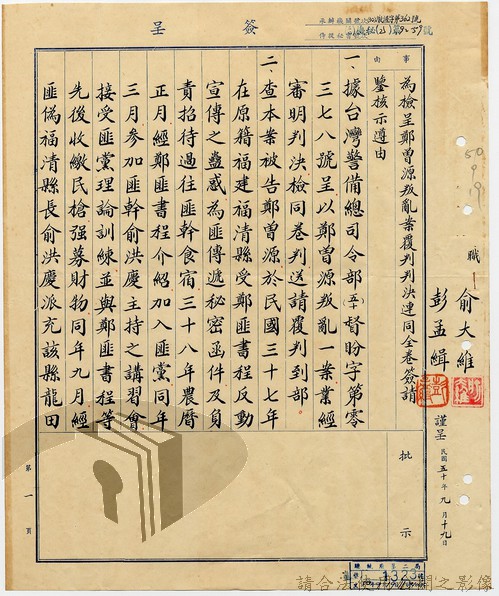 簽呈
事由
為檢呈鄭曾源叛亂案覆判判決連同全卷簽請
鑒核示遵由
職
俞大維
彭孟緝
謹呈
民國五十年九月十九日
一、據台灣警備總司令部㈤督盼字第零
三七八號呈以鄭曾源叛亂一案業經
審明判決檢同卷判送請覆判到部
二、查本案被告鄭曾源於民國三十七年
在原籍福建福清縣受鄭匪書程反動
宣傳之蠱惑為匪傳遞秘密函件及負
責招待過往匪幹食宿三十八年農曆
正月經鄭匪書程介紹加入匪黨同年
三月參加匪幹俞洪慶主持之講習會
接受匪黨理論訓練並與鄭匪書程等
先後收繳民槍强募財物同年九月經
匪偽福清縣長俞洪慶派充該縣龍田
批示
第一頁
50
9
19
1323
請合法使用公開之影像